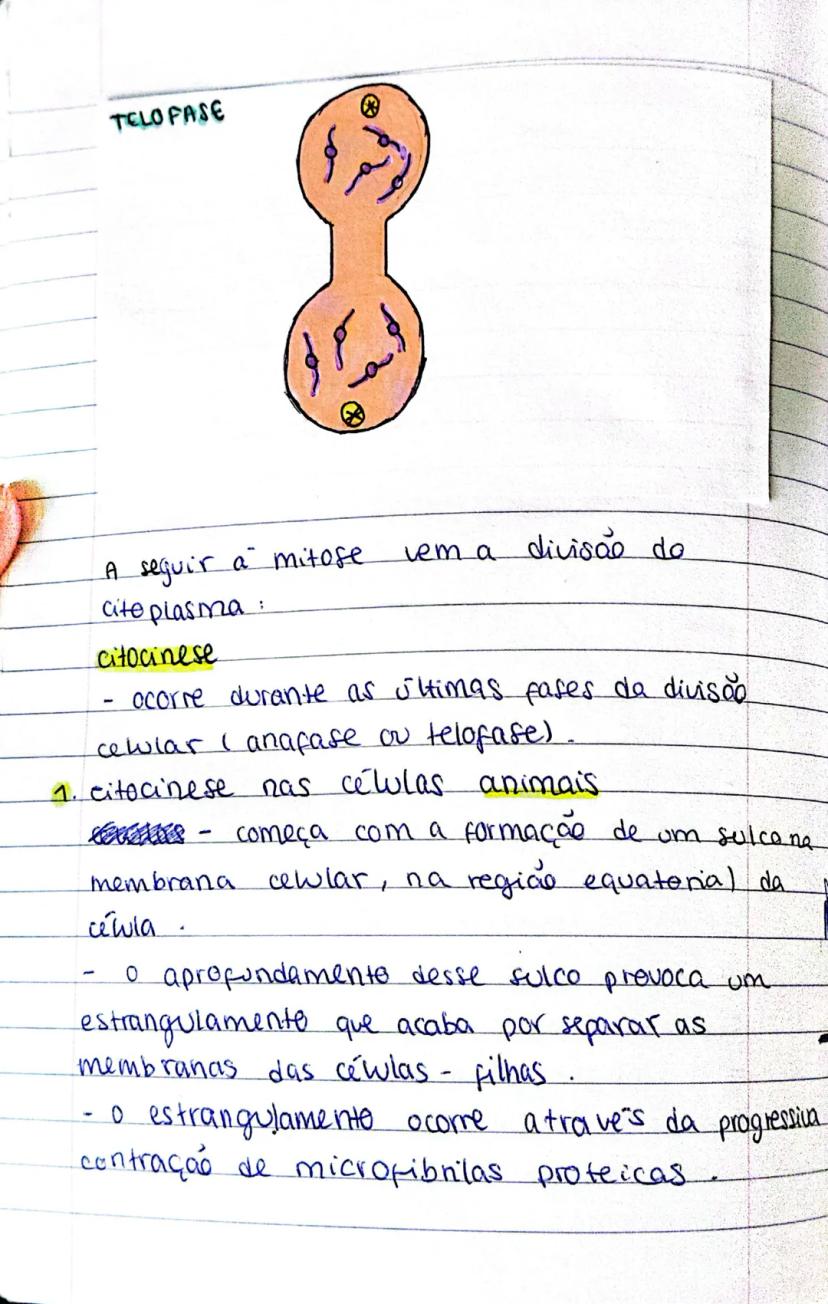 TELOFASE
A seguir à mitose vem a divisão do
citoplasma :
citocinese
- ocorre durante as últimas fases da divisão
celular ( anafase ou telofase) .
1. citocinese nas células animais
- começa com a formação de um sulco na
membrana celular, na região equatorial da
célula .
- o aprofundamento desse sulco provoca um
estrangulamento que acaba por separar as
membranas das células - filhas .
- o estrangulamento ocorre através da progressiva
contração de microfibrilas proteicas .